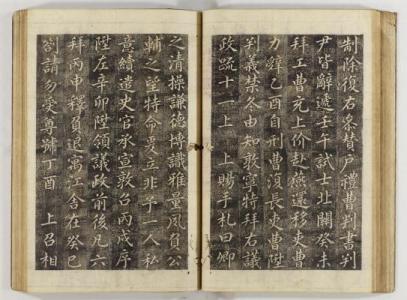 制除復右參賛户禮曹判書判
尹皆辭遞壬午試士北關癸未
拜工曹充上价赴燕還移吏曹
力辭己酉自刑曹復長吏曹陞
判義禁冬由知敦寧特拜右議
政疏十一上 上賜手札曰卿
之清操謙德博識雅量夙負公
輔之望特命爰立非予一人私
意續遣史官承宣敦召丙戌序
陞左辛卯陞領議政前後凡六
拜丙申釋負退寓江舍在癸巳
劄請勿受尊號丁酉 上召相